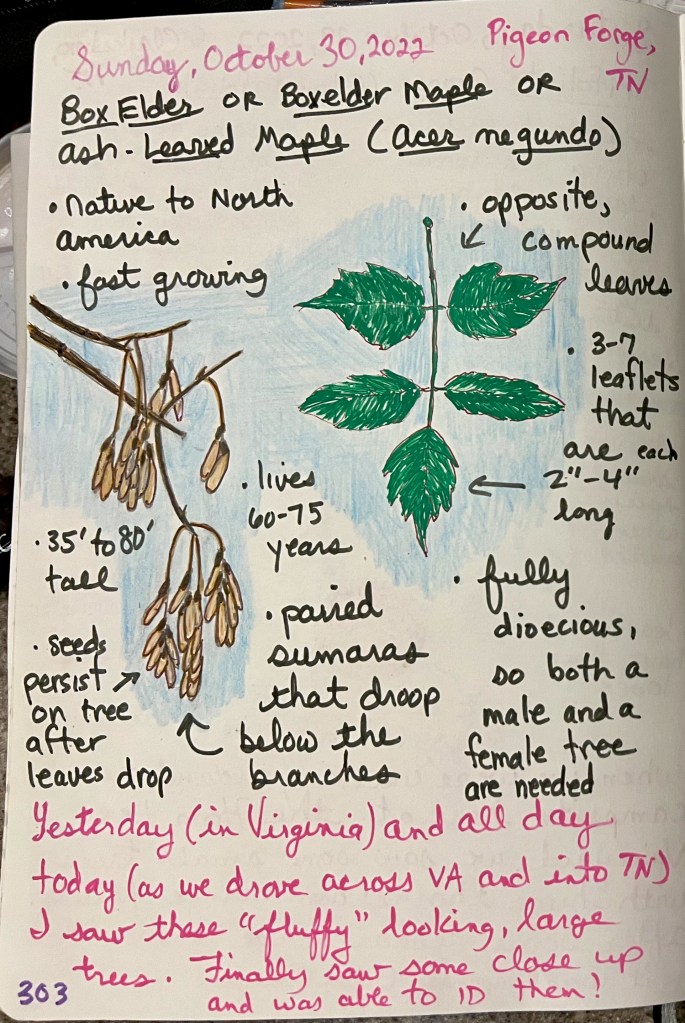 Sunday, October 30, 2022
Pigeon Forge,
TN
Box Elder or Boxelder Maple or
ash-Leaved Maple (acer negundo)
• native to North
america
• fast growing
• opposite,
compound
leaves
• 3-7
leaflets
that
are each
2"-4"
long
• lives
60-75
years
• 35' to 80'
tall
• seeds
persist
on tree
after
leaves drop
• paired
sumaras
that droop
below the
branches
• fully
dioecious,
so both a
male and a
female tree
are needed
Yesterday (in Virginia) and all day
today (as we drove across VA and into TN)
I saw these "fluffy" looking, large
trees. Finally saw some close up
and was able to ID them!
303